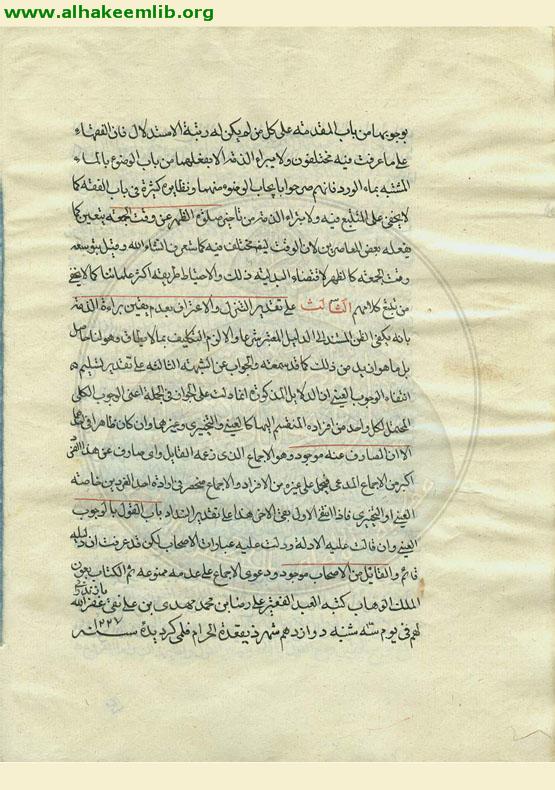 www.alhakeemlib.org
بوجوبها من باب المقدمة على كل من لم يكن له رتبة الاستدلال فان الفقهاء
على ما عرفت فيه مختلفون ولا يبراء الذمة الا بفعلها من باب الوضوء بالماء
المشتبه بماء الورد فانهم صرحوا بايجاب الوضوء منهما ونظايره كثيرة في باب الفقه كما
لا يخفى على المتتبع فيه ولا يبراء الذمة من تاخير صلوة الظهر عن وقت الجمعة يتعين كما
يفعله بعض المعاصرين لان الوقت ايضا مختلف فيه كما ستعرف انشاء الله وقيل بتوسعة
وقت الجمعة كالظهر لاقتضاء البدلية ذلك والاحتياط طريقة اكثر علمائنا كما لا يخفى
من تتبع كلامهم الثالث على تقدير التنزل والاعتراف بعدم يقين براءة الذمة
بانه يكفى الظن المستند الى الدليل المعتبر شرعا والا لزم التكليف بما لا يطاق وهو هنا حاصل
بل ما هو ازيد من ذلك كما قد سمعته والجواب عن الشبهة الثالثة على تقدير تسليم
انتفاء الوجوب العيني ان الدلايل المذكورة انما دلت على الجواز في الجملة اعنى الوجوب الكلى
المحتمل لكل واحد من افراده المنقسم اليها كالعيني والتخييري وغيرهما وان كان ظاهرا في
الا ان الصارف عنه موجود وهو الاجماع الذى زعمه القايل واى صارف عن هذا
اكبر من الاجماع المدعى فيحمل على غيره من الافراد والاجماع منحصر في ارادة احد الفردين خاصة
العيني او التخييري فاذا انتفى الاول بقى الاخر هذا على تقدير انسداد باب القول بالوجوب
العيني وان قالت عليه الادلة ودلت عليه عبارات الاصحاب لكن قد عرفت ان دليله
قائم والقايل من الاصحاب موجود ودعوى الاجماع على عدمه ممنوعة تم الكتاب بعون
الملك الوهاب كتبه العبد الفقير على رضا بن محمد مهدى بن على نقى غفر الله
لهم في يوم سه شنبه دوازدهم شهر ذيقعدة الحرام قلمى كرديده سنه